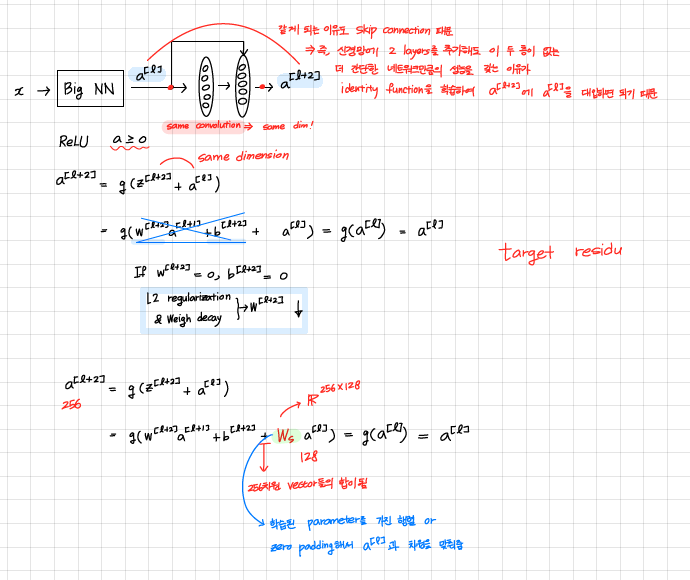 같게 되는 이유도 skip connection 때문
⇒ 즉, 신경망에 2 layers를 추가해도 이 두 층이 없는
더 간단한 네트워크만큼의 성능을 갖는 이유가
identity function을 학습하여 a^[l+2]에 a^[l]을 대입하면 되기 때문
x → Big NN a^[l] → → → a^[l+2]
same convolution ⇒ same dim!
ReLU a ≥ 0
same dimension
a^[l+2] = g(z^[l+2] + a^[l])
= g(w^[l+2] a^[l+1] + b^[l+2] + a^[l]) = g(a^[l]) = a^[l]
target residu
If w^[l+2] = 0, b^[l+2] = 0
L2 regularization
& Weigh decay } → w^[l+2] ↓
a^[l+2] = g(z^[l+2] + a^[l])
256
ℝ^256×128
= g(w^[l+2] a^[l+1] + b^[l+2] + Ws a^[l]) = g(a^[l]) = a^[l]
128
256차원 vector들의 합이됨
학습된 parameter를 가진 행렬 or
zero padding해서 a^[l]과 차원을 맞춰줌